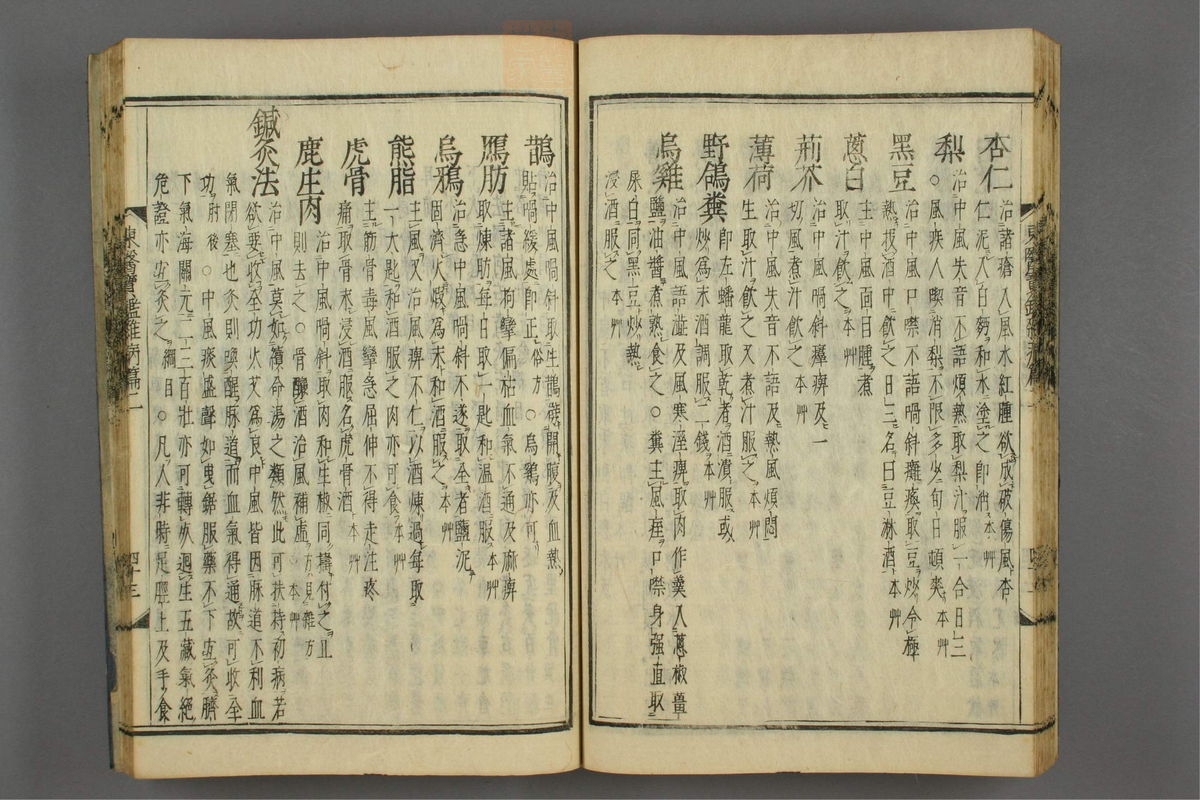 杏仁
治諸瘡入風水紅腫欲成破傷風杏
仁泥入白麪和水塗之即消本艸
梨
治中風失音不語煩熱取梨汁服一合日二
○風疾人喫消梨不限多少旬日頓爽本艸
黑豆
治中風口噤不語喎斜癱瘓取豆炒令極
熱投酒中飮之日三名曰豆淋酒本艸
蔥白
主中風面目腫煮
取汁飮之本艸
荊芥
治中風喎斜㿏痺及一
切風煮汁飮之本艸
薄荷
治中風失音不語及熱風煩悶
生取汁飮之又煮汁服之本艸
野鴿糞
即左蟠龍取乾者酒漬服或
炒爲末酒調服二錢本艸
烏雞
治中風語澁及風寒溼痺取肉作羹入蔥椒薑
鹽油醬煮熟食之○糞主風痓口噤身强直取
屎白同黑豆炒熱
浸酒服之本艸
鵲
治中風喎斜取生鵲劈開腹及血熱
貼喎緩處即正俗方○烏鷄亦可
鴈肪
主諸風拘攣偏枯血氣不通及麻痺
取煉肪每日取一匙和温酒服本艸
烏鴉
治急中風喎斜不遂取全者鹽泥
固濟火煅爲末和酒服之本艸
熊脂
主風又治風痺不仁以酒煉過每取
一大匙和酒服之肉亦可食本艸
虎骨
主筋骨毒風攣急屈伸不得走注疼
痛取骨末浸酒服名虎骨酒本艸
鹿生肉
治中風喎斜取肉和生椒同擣付之正
則去之○骨釀酒治風補虛方見雜方○本艸
鍼灸法
治中風莫如續命湯之類然此可扶持初病若
欲要收全功火艾爲良中風皆因脉道不利血
氣閉塞也灸則喚醒脉道而血氣得通故可收全
功肘後○中風痰盛聲如曳鋸服藥不下宜灸臍
下氣海關元二三百壯亦可轉灸迴生五藏氣絶
危證亦宜灸之綱目○凡人非時足脛上及手食
東醫寶鑑雜病篇二
四十三